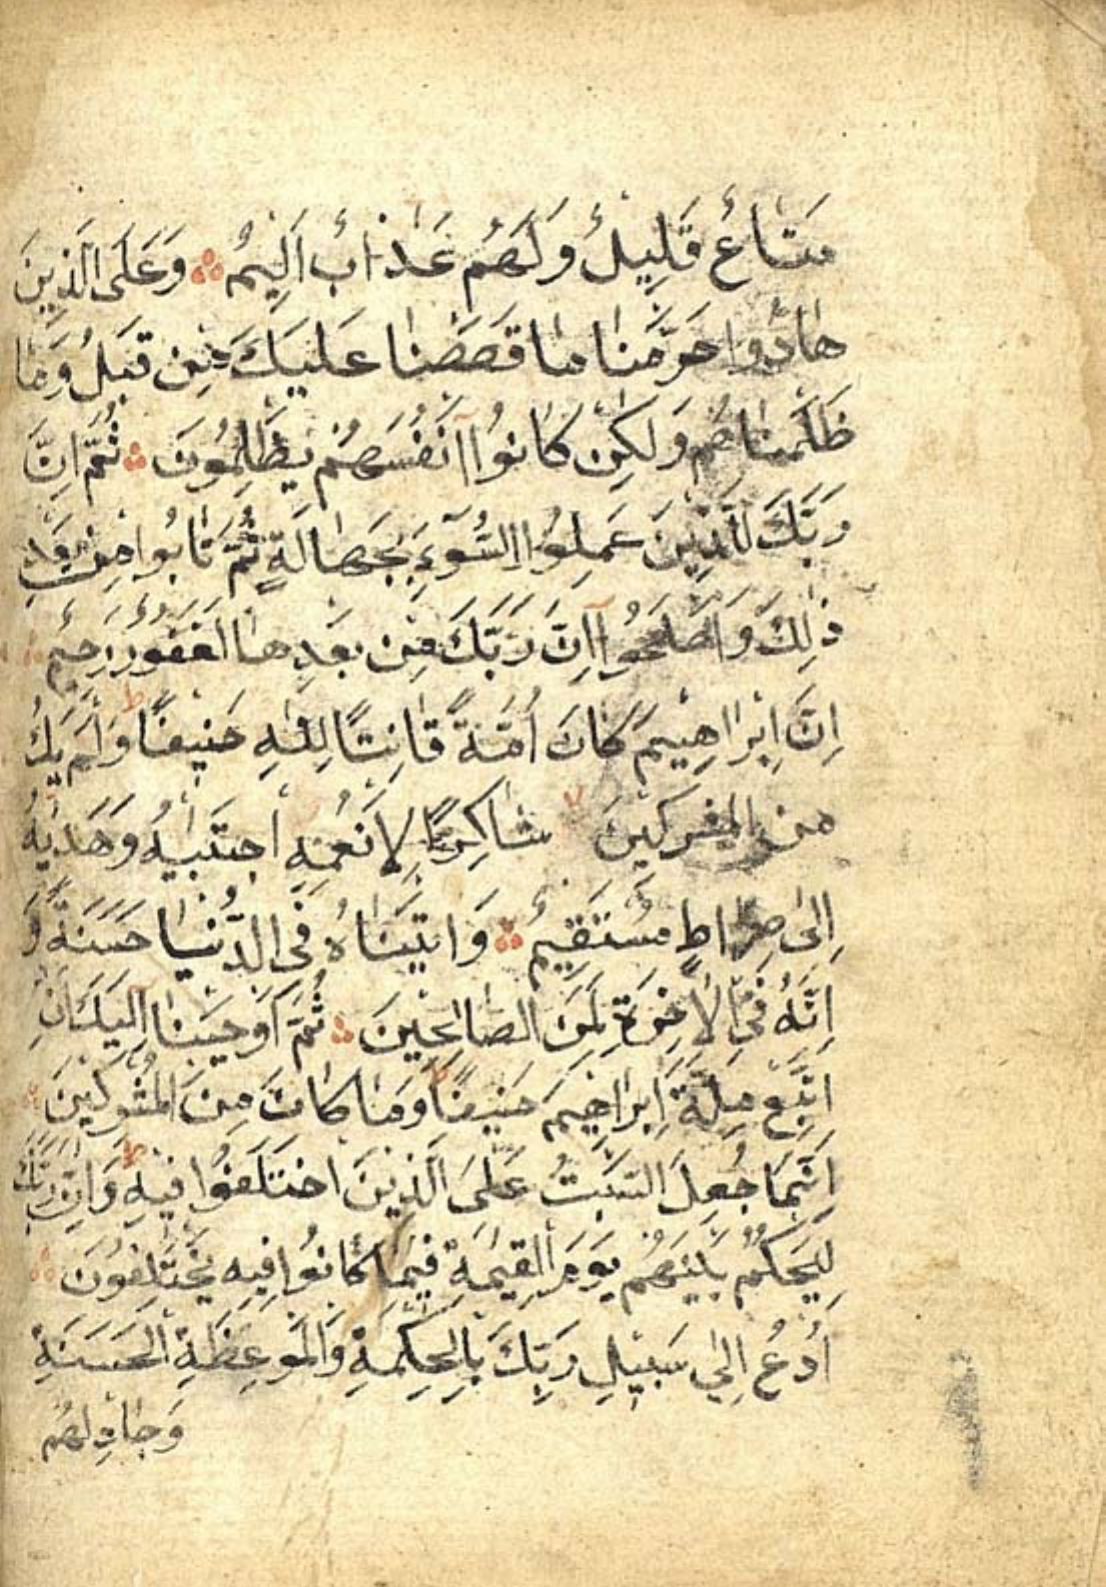 مَتَاعٌ قَلِيلٌ وَلَهُمْ عَذَابٌ اَلِيمٌ وَعَلَى الَّذِينَ
هَادُوا حَرَّمْنَا مَا قَصَصْنَا عَلَيْكَ مِنْ قَبْلُ وَمَا
ظَلَمْنَاهُمْ وَلَكِنْ كَانُوا اَنْفُسَهُمْ يَظْلِمُونَ ثُمَّ اِنَّ
رَبَّكَ لِلَّذِينَ عَمِلُوا السُّوءَ بِجَهَالَةٍ ثُمَّ تَابُوا مِنْ بَعْدِ
ذَلِكَ وَاَصْلَحُوا اِنَّ رَبَّكَ مِنْ بَعْدِهَا لَغَفُورٌ رَحِيمٌ
اِنَّ اِبْرَاهِيمَ كَانَ اُمَّةً قَانِتًا لِلَّهِ حَنِيفًا ط وَلَمْ يَكُ
مِنَ الْمُشْرِكِينَ لا شَاكِرًا لِاَنْعُمِهِ اجْتَبَيهُ وَهَدَيهُ
اِلَى صِرَاطٍ مُسْتَقِيمٍ وَاَتَيْنَاهُ فِى الدُّنْيَا حَسَنَةً وَ
اِنَّهُ فِى الْاَخِرَةِ لَمِنَ الصَّالِحِينَ ثُمَّ اَوْحَيْنَا اِلَيْكَ اَنِ
اتَّبِعْ مِلَّةَ اِبْرَاهِيمَ حَنِيفًا ط وَمَا كَانَ مِنَ الْمُشْرِكِينَ
اِنَّمَا جُعِلَ السَّبْتُ عَلَى الَّذِينَ اخْتَلَفُوا فِيهِ ط وَاِنَّ رَبَّكَ
لَيَحْكُمُ بَيْنَهُمْ يَوْمَ الْقِيمَةِ فِيمَا كَانُوا فِيهِ يَخْتَلِفُونَ
اُدْعُ اِلَى سَبِيلِ رَبِّكَ بِالْحِكْمَةِ وَالْمَوْعِظَةِ الْحَسَنَةِ
وَجَادِلْهُمْ